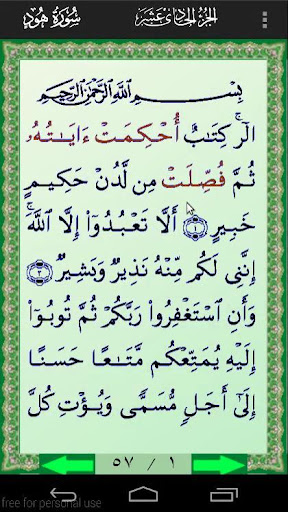 سُورَةُ هُودٍ الجُزْءُ الحَادِى عَشَرَ
بِسْمِ اللَّهِ الرَّحْمَٰنِ الرَّحِيمِ
الٓرۚ كِتَٰبٌ أُحْكِمَتْ ءَايَٰتُهُۥ
ثُمَّ فُصِّلَتْ مِن لَّدُنْ حَكِيمٍ
خَبِيرٍ ١ أَلَّا تَعْبُدُوٓا۟ إِلَّا ٱللَّهَۚ
إِنَّنِى لَكُم مِّنْهُ نَذِيرٌ وَبَشِيرٌ ٢
وَأَنِ ٱسْتَغْفِرُوا۟ رَبَّكُمْ ثُمَّ تُوبُوٓا۟
إِلَيْهِ يُمَتِّعْكُم مَّتَٰعًا حَسَنًا
إِلَىٰٓ أَجَلٍ مُّسَمًّى وَيُؤْتِ كُلَّ
٥٧ / ١
free for personal use